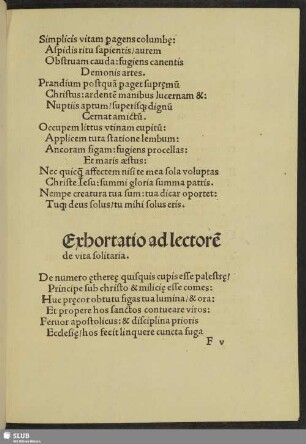 Simplicis vitam pa̅gens columbę:
Aspidis ritu sapientis/aurem
Obstruam cauda: fugiens canentis
Demonis artes.
Prandium postqua̅ pager supręmu̅
Christus: ardente̅ manibus lucernam &:
Nuptiis aptum/superisq; dignu̅
Cernat amictu̅.
Occupem littus vtinam cupitu̅:
Applicem tuta statione lembum:
Ancoram figam: fugiens procellas:
Et maris æstus:
Nec quicq̅ affectem nisi te mea sola voluptas
Christe Iesu: summi gloria summa patris.
Nempe creatura tua sum: tua dicar oportet:
Tuq; deus solus/tu mihi solus eris.
Exhortatio ad lectore̅
de vita solitaria.
De numero ęthereę quisquis cupis esse palestrę/
Principe sub christo & milicię esse comes:
Huc pręcor obtutu figas tua lumina/& ora:
Et propere hos sanctos contueare viros:
Feruor apostolicus: & disciplina prioris
Ecclesię/hos fecit linquere cuncta fuga
F v
SLUB